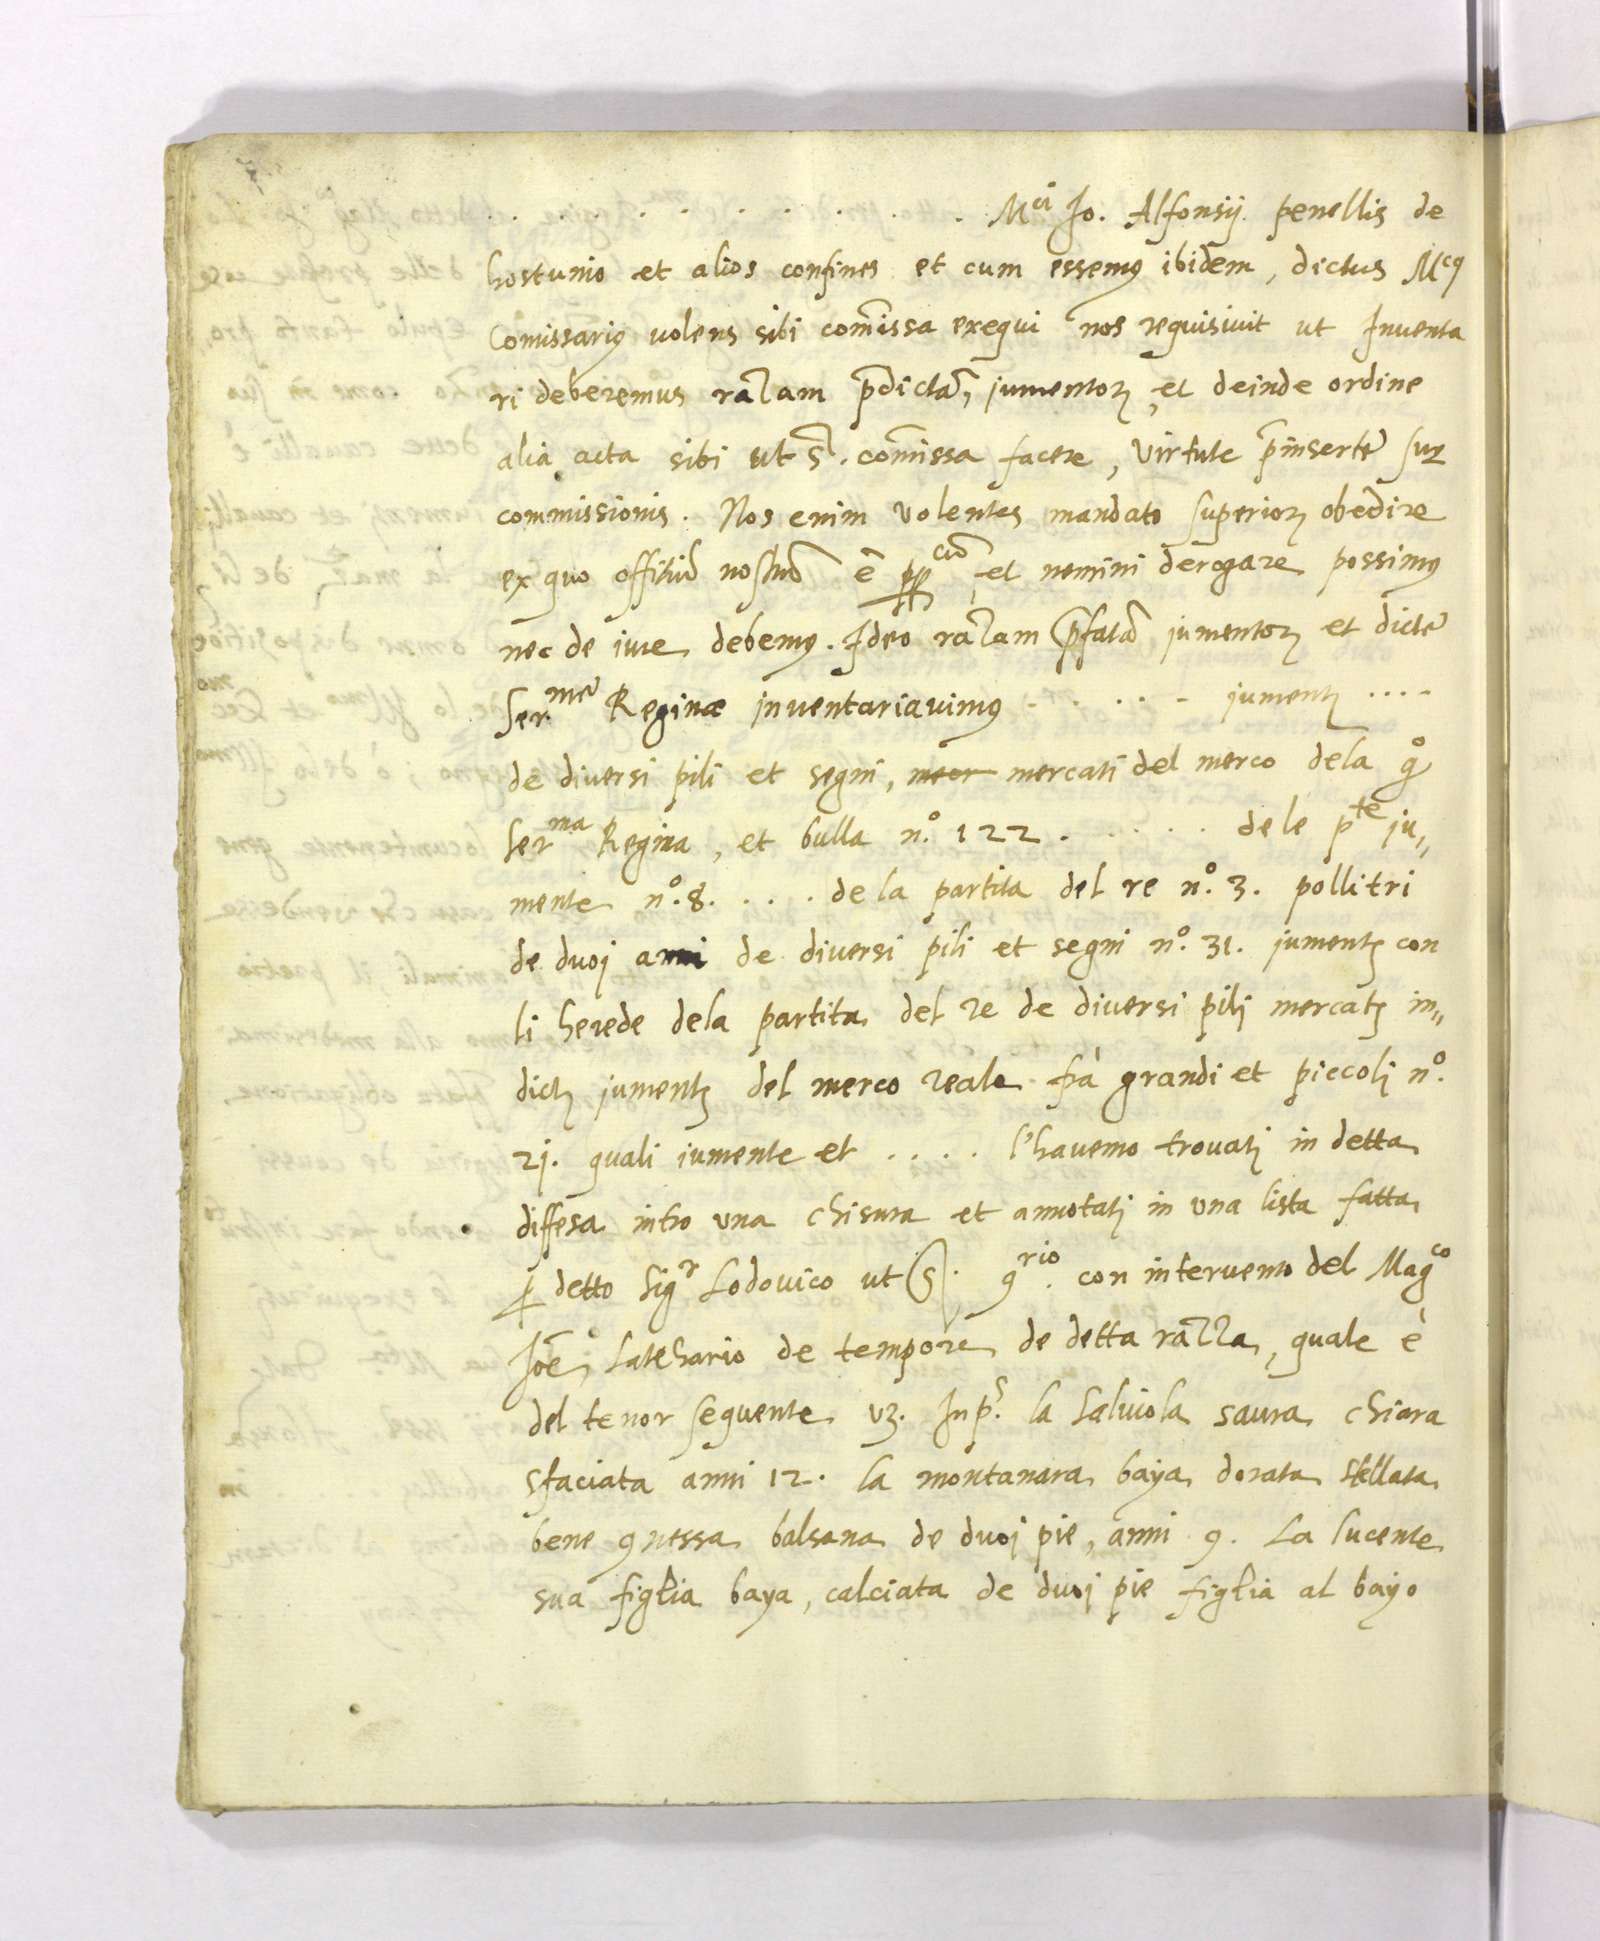 . . . . . . . . . Mci Jo. Alfonsij penellis de
hostunio et alios confines et cum essemꝰ ibidem, dictus Mcꝰ
Comissariꝰ volens sibi com̃issa exequi nos requisivit ut Inventa
ri deberemus raZam p̃dictã, jumentoꝝ, et deinde ordine
alia acta sibi ut s.ᵃ com̃issa facere, virtute p̃insertę suę
commissionis. Nos enim volentes mandato superioꝝ obedire
ex quo offitiũ nostrũ ẽ et nemini derogare possimꝰ
nec de iure debemꝰ. Ideo raZam p̃fatã jumentoꝝ et dictę
Ser.mę Reginæ inventariavimꝰ . . . . . jument . . . .
de diversi pili et segni, meor mercati del merco dela qo
Serma Regina, et bulla n.º 122 . . . . . dele pte ju„
mente n.º 8. . . . de la partita del re n.º 3. pollitri
de duoj anni de diversi pili et segni n.º 31. jument con
li herede dela partita del re de diversi pilj mercatj in„
dict jument del merco reale frà grandi et piccolj n.º
21. quali iumente et . . . . l'havemo trovatj in detta
diffesa intro una chisura et annotatj in una lista fatta
ꝑ detto Sigr Lodovico ut s.ᵃ ꝯrio. con intervento del Magco
Joẽ de tempore de detta raZZa, quale è
del tenor seguente vz. Inp.s la Salviola saura chiara
sfaciata anni 12. la montanara baya dorata stellata
bene ꝯnessa balsana de duoj pie, anni 9. La lucente
sua figlia baya, calciata de duoj pie figlia al bayo